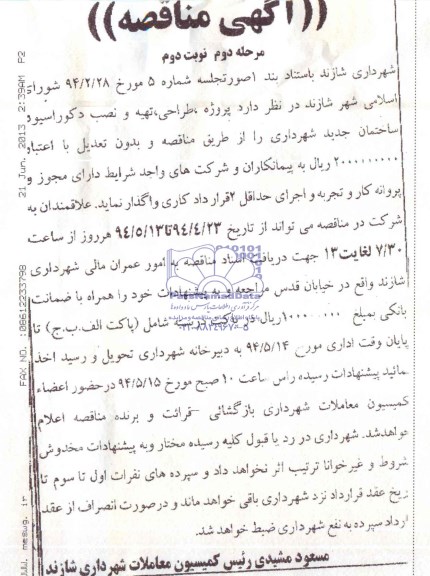 ((آگهی مناقصه))
مرحله دوم نوبت دوم
شهرداری شازند باستناد بند ۱صورتجلسه شماره ۵ مورخ ۹۴/۲/۲۸ شورای
اسلامی شهر شازند در نظر دارد پروژه ،طراحی،تهیه و نصب دکوراسیون
ساختمان جدید شهرداری را از طریق مناقصه و بدون تعدیل با اعتبار
۲۰۰۰۰۰۰۰۰۰ ریال به پیمانکاران و شرکت های واجد شرایط دارای مجوز و
پروانه کار و تجربه و اجرای حداقل ۲قرار داد کاری واگذار نماید. علاقمندان به
شرکت در مناقصه می تواند از تاریخ ۹۴/۴/۲۳تا۹۴/۵/۱۳ هرروز از ساعت
۷/۳۰ لغایت۱۳ جهت دریافت اسناد مناقصه به امور عمران مالی شهرداری
شازند واقع در خیابان قدس مراجعه و به پیشنهادات خود را همراه با ضمانت
بانکی بمبلغ ریال در پاکت دربسته شامل (پاکت الف.ب.ج) تا
پایان وقت اداری مورخ ۹۴/۵/۱۴ به دبیرخانه شهرداری تحویل و رسید اخذ
نمائید پیشنهادات رسیده راس ساعت ۱۰ صبح مورخ ۹۴/۵/۱۵ درحضور اعضاء
کمیسیون معاملات شهرداری بازگشائی قرائت و برنده مناقصه اعلام
خواهدشد. شهرداری در رد یا قبول کلیه رسیده مختار وبه پیشنهادات مخدوش
شروط و غیرخوانا ترتیب اثر نخواهد داد و سپرده های نفرات اول تا سوم تا
ریخ عقد قرارداد نزد شهرداری باقی خواهد ماند و درصورت انصراف از عقد
ارداد سپرده به نفع شهرداری ضبط خواهد شد.
مسعود مشیدی رئیس کمیسیون معاملات شهرداری شازند
21 Jun. 2013 2:39AM P2
FAX NO. :08612233798
ParsNamadData